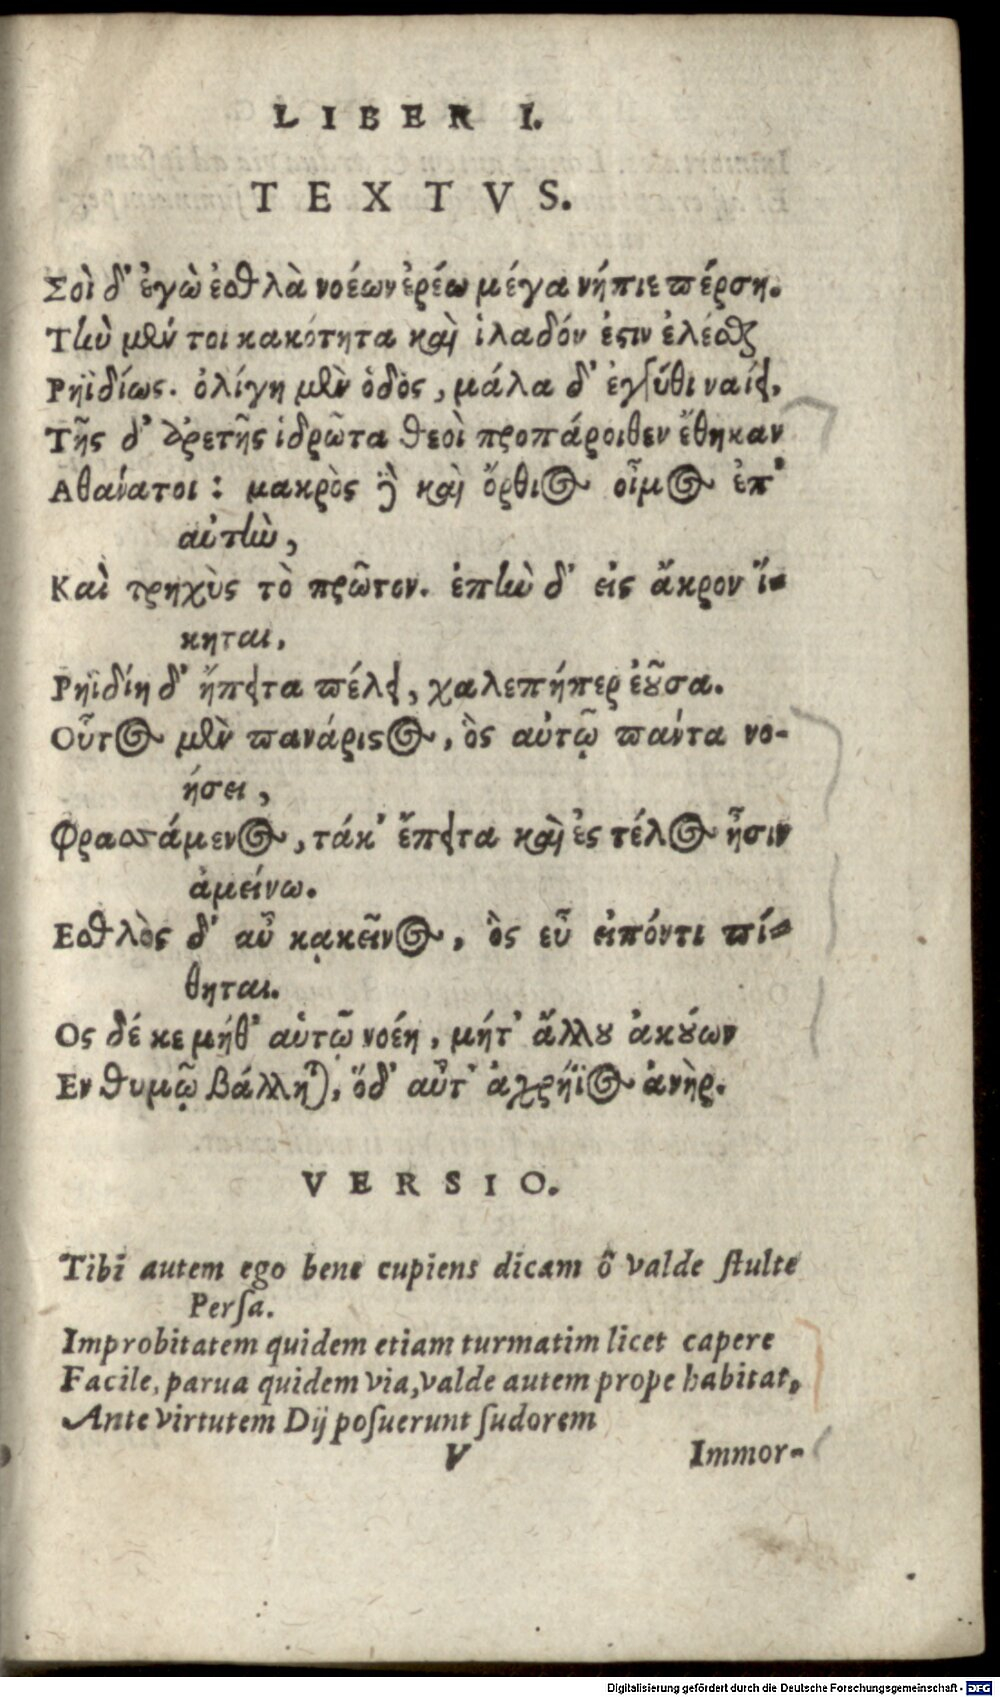 LIBER I.
TEXTVS.
Σοὶ δ' ἐγὼ ἐσθλὰ νοέων ἐρέω μέγα νήπιε πέρση.
Τὴν μέν τοι κακότητα καὶ ἰλαδόν ἐστιν ἑλέσθαι
Ρηϊδίως. ὀλίγη μὲν ὁδὸς, μάλα δ' ἐγγύθι ναίει.
Τῆς δ' ἀρετῆς ἱδρῶτα θεοὶ προπάροιθεν ἔθηκαν
Αθάνατοι: μακρὸς δὲ καὶ ὄρθιος οἶμος ἐπ'
αὐτὴν,
Καὶ τρηχὺς τὸ πρῶτον. ἐπὴν δ' εἰς ἄκρον ἵ-
κηται,
Ρηϊδίη δ' ἤπειτα πέλει, χαλεπήπερ ἐοῦσα.
Οὗτος μὲν πανάριστος, ὃς αὐτῷ πάντα νο-
ήσει,
Φρασσάμενος, τάκ' ἔπειτα καὶ ἐς τέλος ᾖσιν
ἀμείνω.
Εσθλὸς δ' αὖ κᾳκεῖνος, ὃς εὖ εἰπόντι πί-
θηται.
Ος δέ κε μήθ' αὑτῷ νοέῃ, μήτ' ἄλλου ἀκούων
Εν θυμῷ βάλληται, ὅδ' αὖτ' ἀχρήϊος ἀνὴρ.
VERSIO.
Tibi autem ego bene cupiens dicam ô valde stulte
Persa.
Improbitatem quidem etiam turmatim licet capere
Facile, parua quidem via, valde autem prope habitat,
Ante virtutem Dij posuerunt sudorem
V Immor-
Digitalisierung gefördert durch die Deutsche Forschungsgemeinschaft - DFG